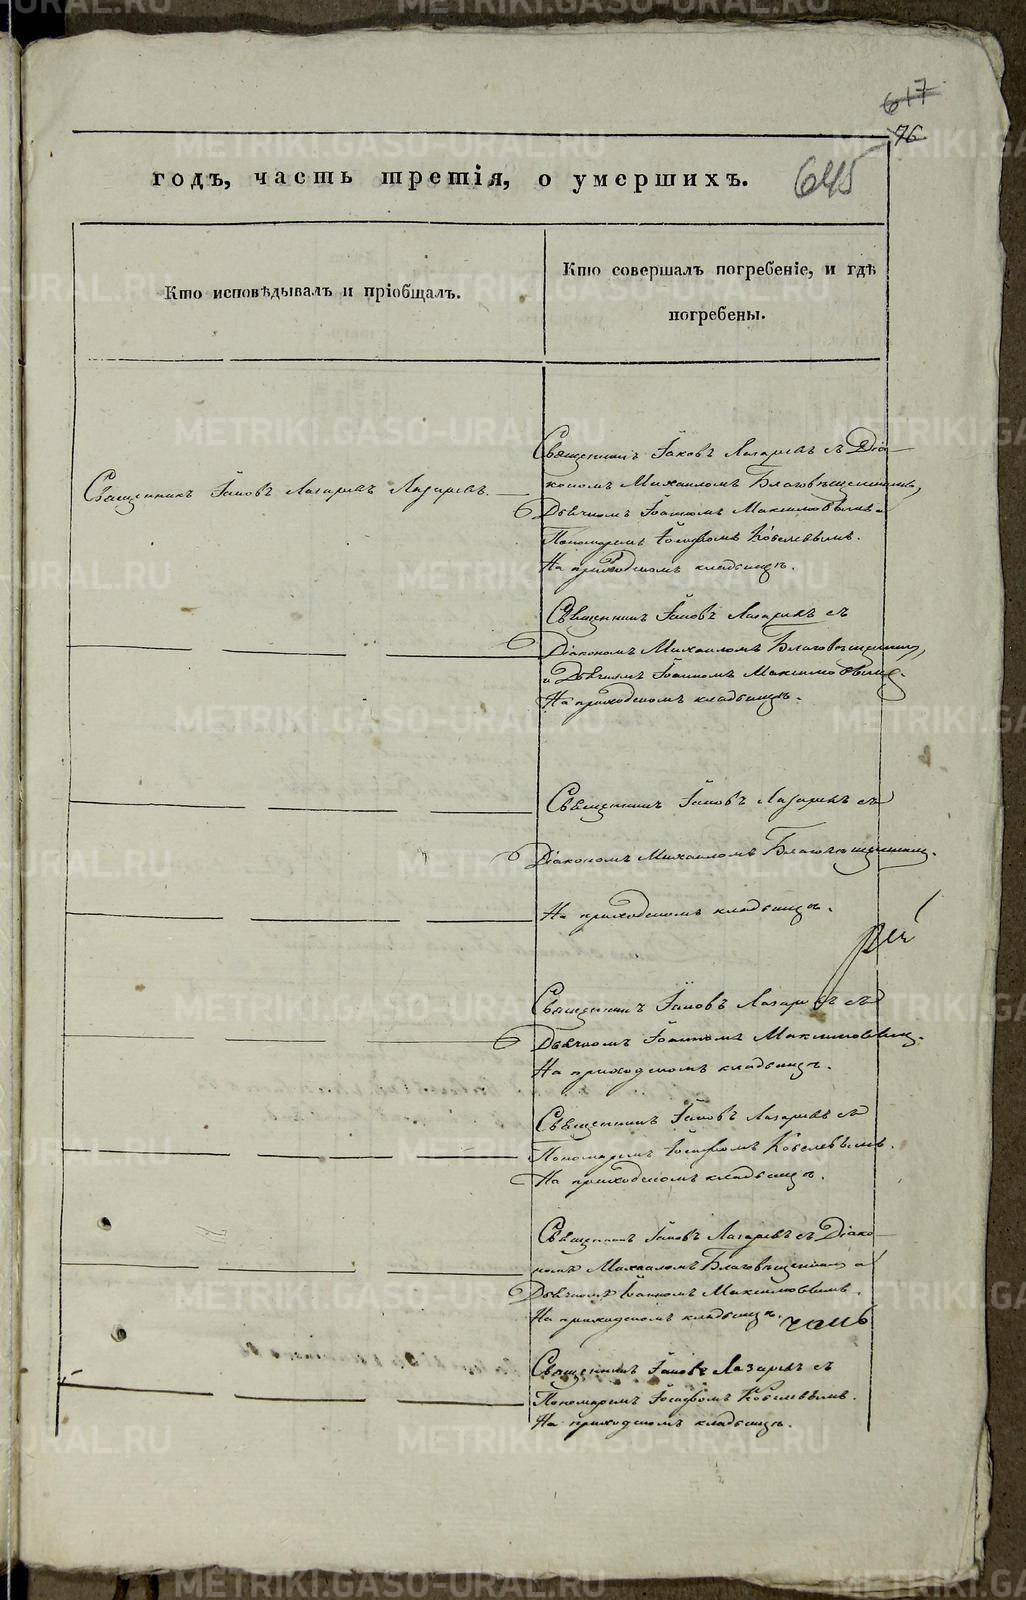 617
76
645
годъ, часть третія, о умершихъ.
Кто исповѣдывалъ и пріобщалъ.
Кто совершалъ погребеніе, и гдѣ
погребены.
Священникъ Іаковъ Лазаревъ Лазаревъ.
Священникъ Іаковъ Лазаревъ съ Діа-
кономъ Михаиломъ Благовѣщенскимъ,
Дьячкомъ Іоанномъ Максимовымъ и
Пономаремъ Іосифомъ Кобелевымъ.
На приходскомъ кладбищѣ.
Священникъ Іаковъ Лазаревъ съ
Діакономъ Михаиломъ Благовѣщенскимъ,
и Дьячкомъ Іоанномъ Максимовымъ.
На приходскомъ кладбищѣ.
Священникъ Іаковъ Лазаревъ съ
Діакономъ Михаиломъ Благовѣщенскимъ.
На приходскомъ кладбищѣ.
Священникъ Іаковъ Лазаревъ съ
Дьячкомъ Іоанномъ Максимовымъ.
На приходскомъ кладбищѣ.
Священникъ Іаковъ Лазаревъ съ
Пономаремъ Іосифомъ Кобелевымъ.
На приходскомъ кладбищѣ.
Священникъ Іаковъ Лазаревъ съ Діако-
номъ Михаиломъ Благовѣщенскимъ и
Дьячкомъ Іоанномъ Максимовымъ.
На приходскомъ кладбищѣ.
Священникъ Іаковъ Лазаревъ съ
Пономаремъ Іосифомъ Кобелевымъ.
На приходскомъ кладбищѣ.
METRIKI.GASO-URAL.RU